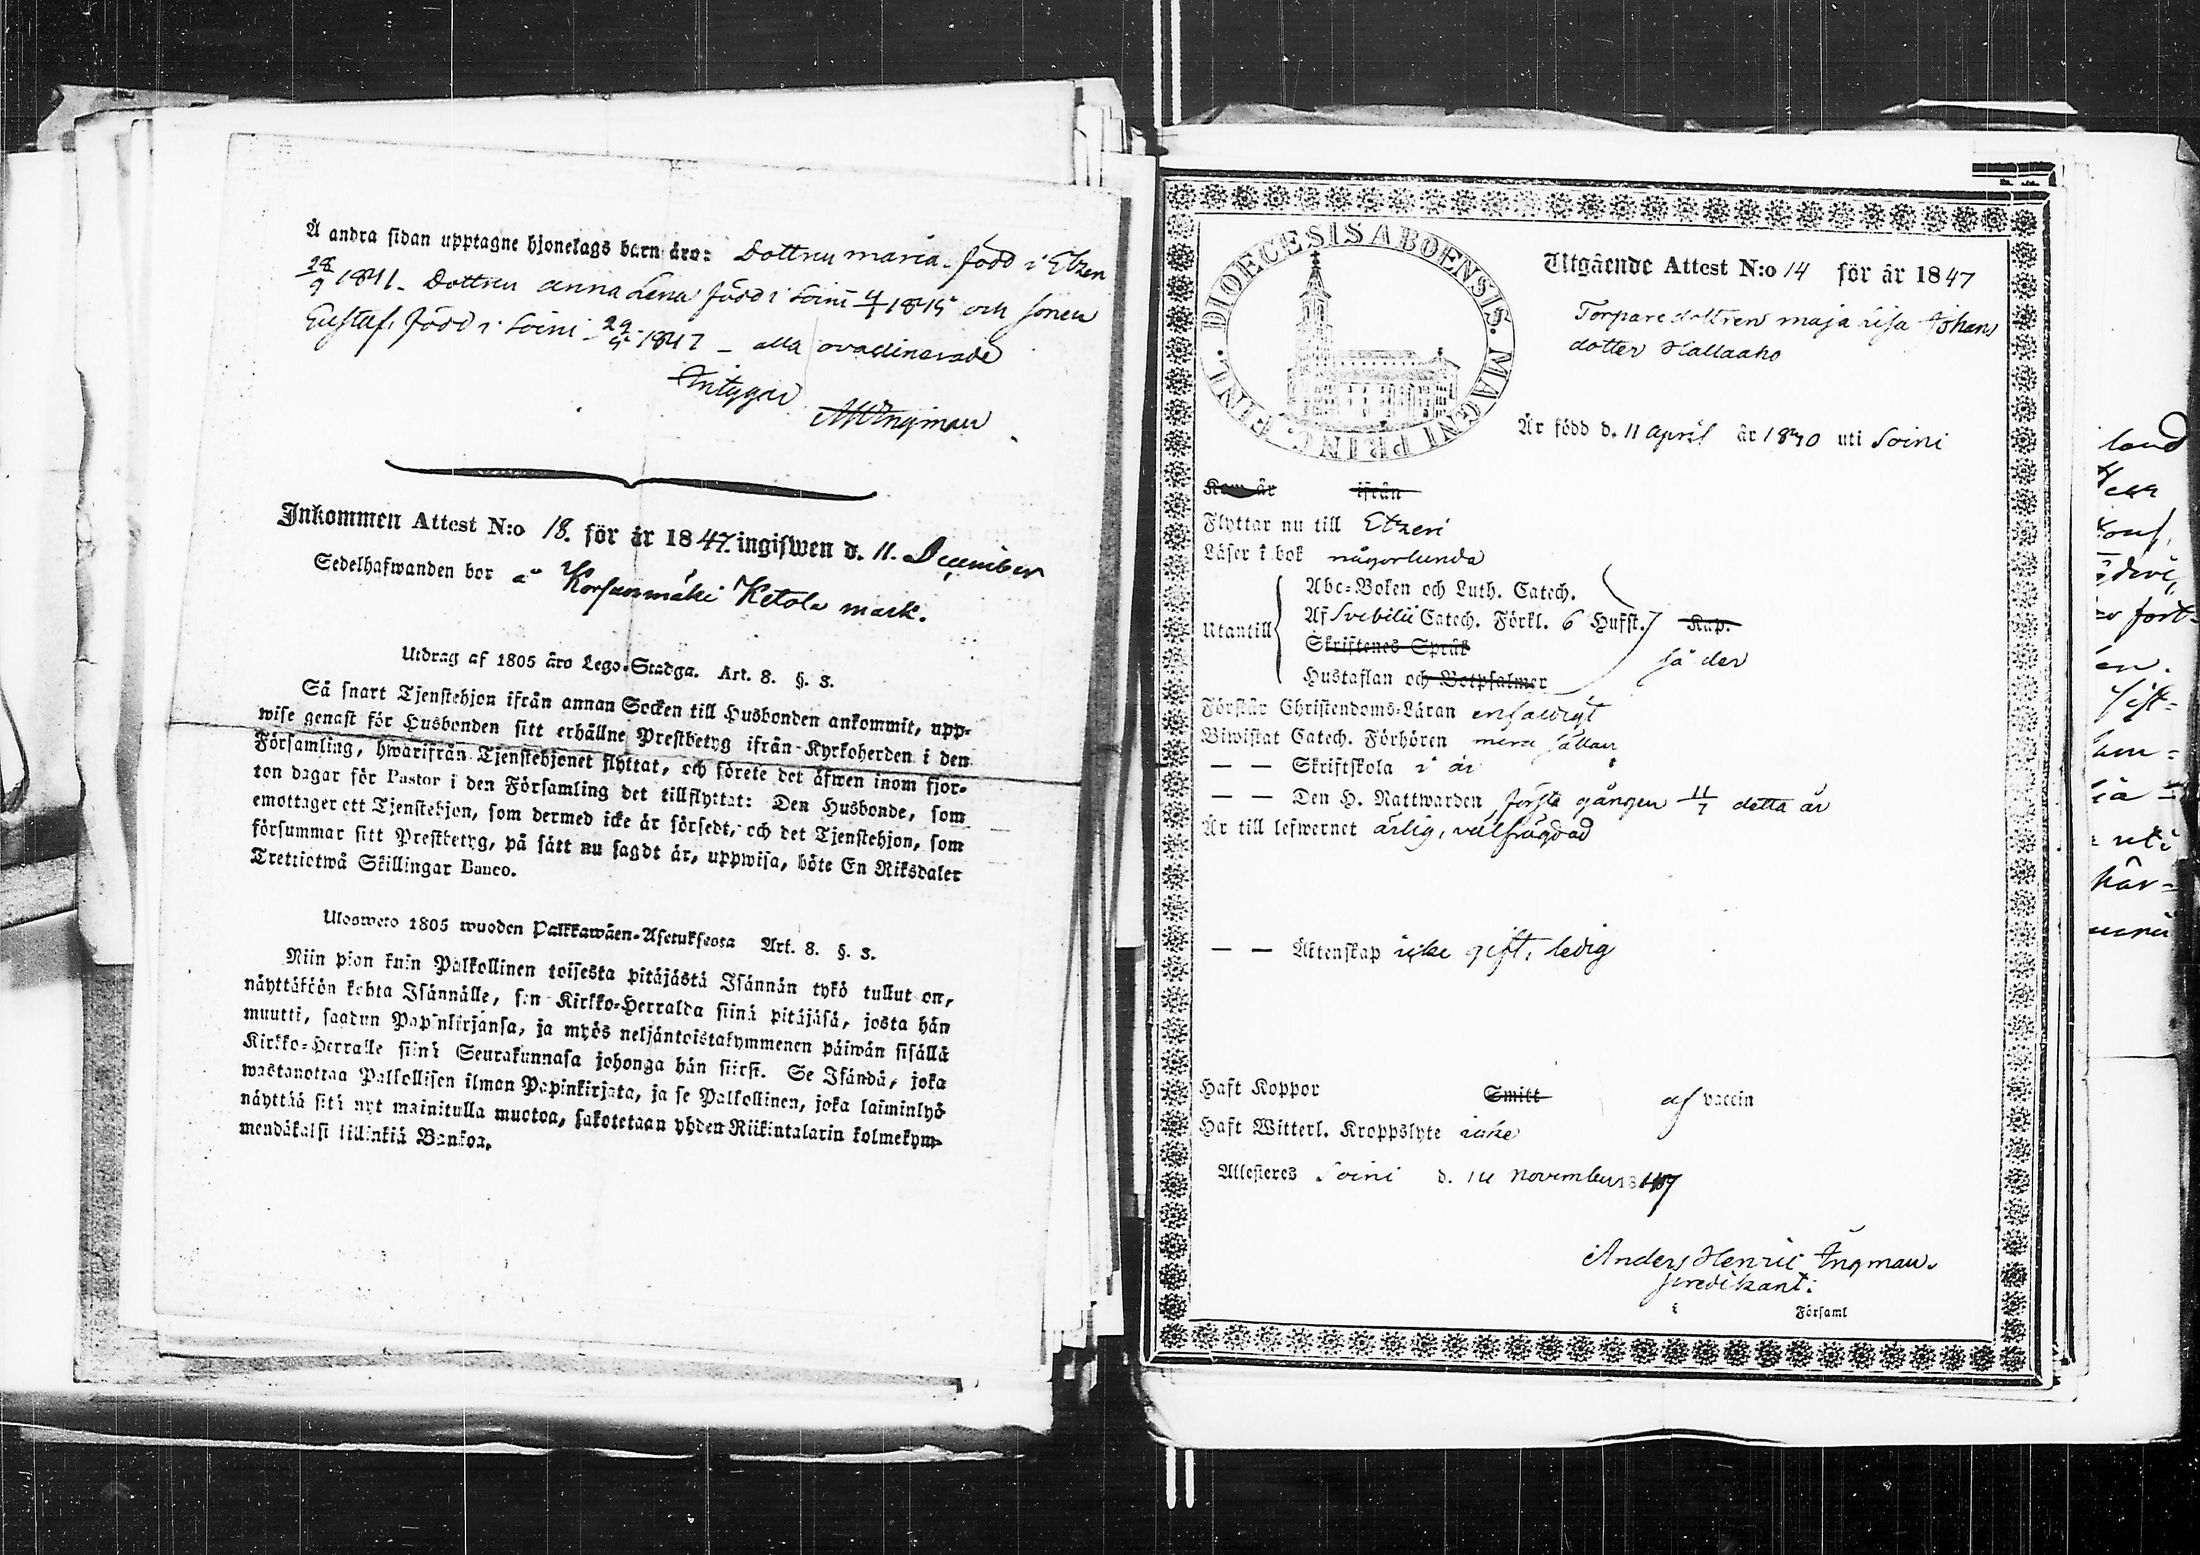 Å andra sidan upptagne hjonelags barn äro: Dottren maria född i Etzeri
28/9 1841. Dottren anna Lena född i Soini 4/1 1845 och sonen
Gustaf, född i Soini 29/5 1847 – alla ovaccinerade
Intygar
AHIngman
Inkommen Attest N:o 18. för år 1847. ingifwen d. 11. December
Sedelhafwanden bor å Korsunmäki Ketola mark.
Utdrag af 1805 års Lego-Stadga. Art. 8. §. 3.
Så snart Tjenstehjon ifrån annan Socken till Husbonden ankommit, upp-
wise genast för Husbonden sitt erhållne Prestbetyg ifrån Kyrkoherden i den
Församling, hwarifrån Tjenstehjonet flyttat, och förete det äfwen inom fjor-
ton dagar för Pastor i den Församling det tillflyttat: Den Husbonde, som
emottager ett Tjenstehjon, som dermed icke är försedt, och det Tjenstehjon, som
försummar sitt Prestbetyg, på sätt nu sagdt är, uppwisa, böte En Riksdaler
Trettiotwå Skillingar Banco.
Ulosweto 1805 wuoden Palkkawäen-Asetuksesta Art. 8. §. 3.
Niin pian kuin Palkollinen toisesta pitäjästä Isännän tykö tullut on,
näyttäköön kohta Isännälle, sen Kirkko-Herralda siinä pitäjäsä, josta hän
muutti, saadun Papinkirjansa, ja myös neljäntoistakymmenen päiwän sisällä
Kirkko-Herralle siinä Seurakunnasa johonga hän siirsi. Se Isändä, joka
wastanottaa Palkollisen ilman Papinkirjata, ja se Palkollinen, joka laiminlyö
näyttää sitä nyt mainitulla muotoa, sakotetaan yhden Riikintalarin kolmekym-
mendäkaksi killinkiä Bankoa.
DIOECESIS ABOENSIS. MAGNI PRINC. FINL.
Utgående Attest N:o 14 för år 1847
Torparedottren maja Lisa Johans
dotter Hallaaho
Är född d. 11 April år 1830 uti Soini
Kom år ifrån
Flyttar nu till Etzeri
Läser i bok någorlunda
Utantill
Abc-Boken och Luth. Catech.
Af Svebilii Catech. Förkl. 6 Hufst. Kap.
Skriftenes Språk
så der
Hustaflan och Botpsalmer
Förstår Christendoms-Läran enfaldigt
Biwistat Catech. Förhören mera sällan
— — Skriftskola i år
— — Den H. Nattwarden första gången 11/7 detta år
Är till lefwernet ärlig, välfrägdad
— — Äktenskap icke gift, ledig
Haft Koppor Smitt af vaccin
Haft Witterl. Kroppslyte icke
Attesteres Soini d. 14 November 1847
Anders Henric Ingman.
predikant.
i Församl
land
fort-
sist-
uti
här-